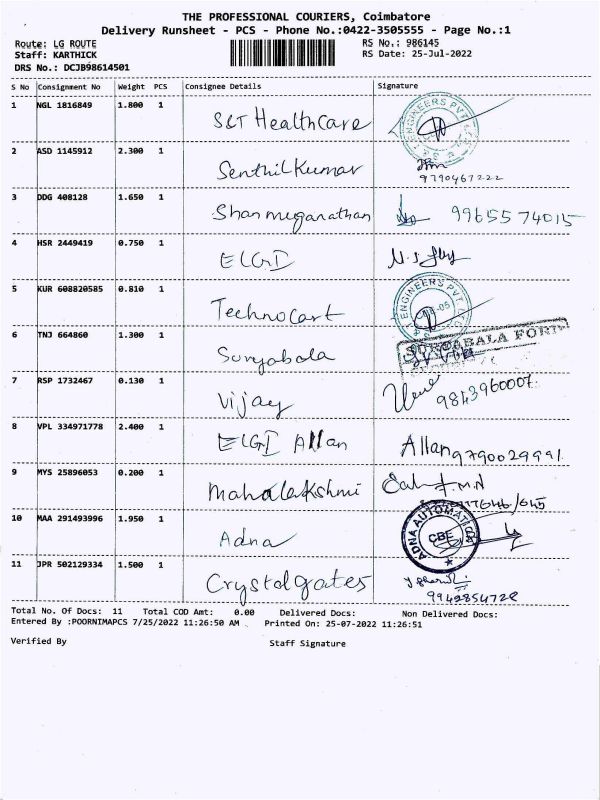 THE PROFESSIONAL COURIERS, Coimbatore
Delivery Runsheet - PCS - Phone No.:0422-3505555 - Page No.:1
Route: LG ROUTE RS No.: 986145
Staff: KARTHICK RS Date: 25-Jul-2022
DRS No.: DCJB98614501
S No Consignment No Weight PCS Consignee Details Signature
1 NGL 1816849 1.800 1 S&T Healthcare ENGINEERS PVT
2 ASD 1145912 2.300 1 Senthil Kumar
9790467222
3 DDG 408128 1.650 1 Shanmuganathan 9965574015
4 HSR 2449419 0.750 1 ELGI
5 KUR 608820585 0.810 1 Technocart ENGINEERS PVT
6 TNJ 664860 1.300 1 Suryabala
7 RSP 1732467 0.130 1 Vijay 9843960007
8 VPL 334971778 2.400 1 ELGI Allan Allan 9790029991
9 MYS 25896053 0.200 1 Mahalakshmi
10 MAA 291493996 1.950 1 Adna ADNA AUTOMATION CBE
11 JPR 502129334 1.500 1 Crystalgates
9942854728
Total No. Of Docs: 11 Total COD Amt: 0.00 Delivered Docs: Non Delivered Docs:
Entered By :POORNIMAPCS 7/25/2022 11:26:50 AM Printed On: 25-07-2022 11:26:51
Verified By Staff Signature